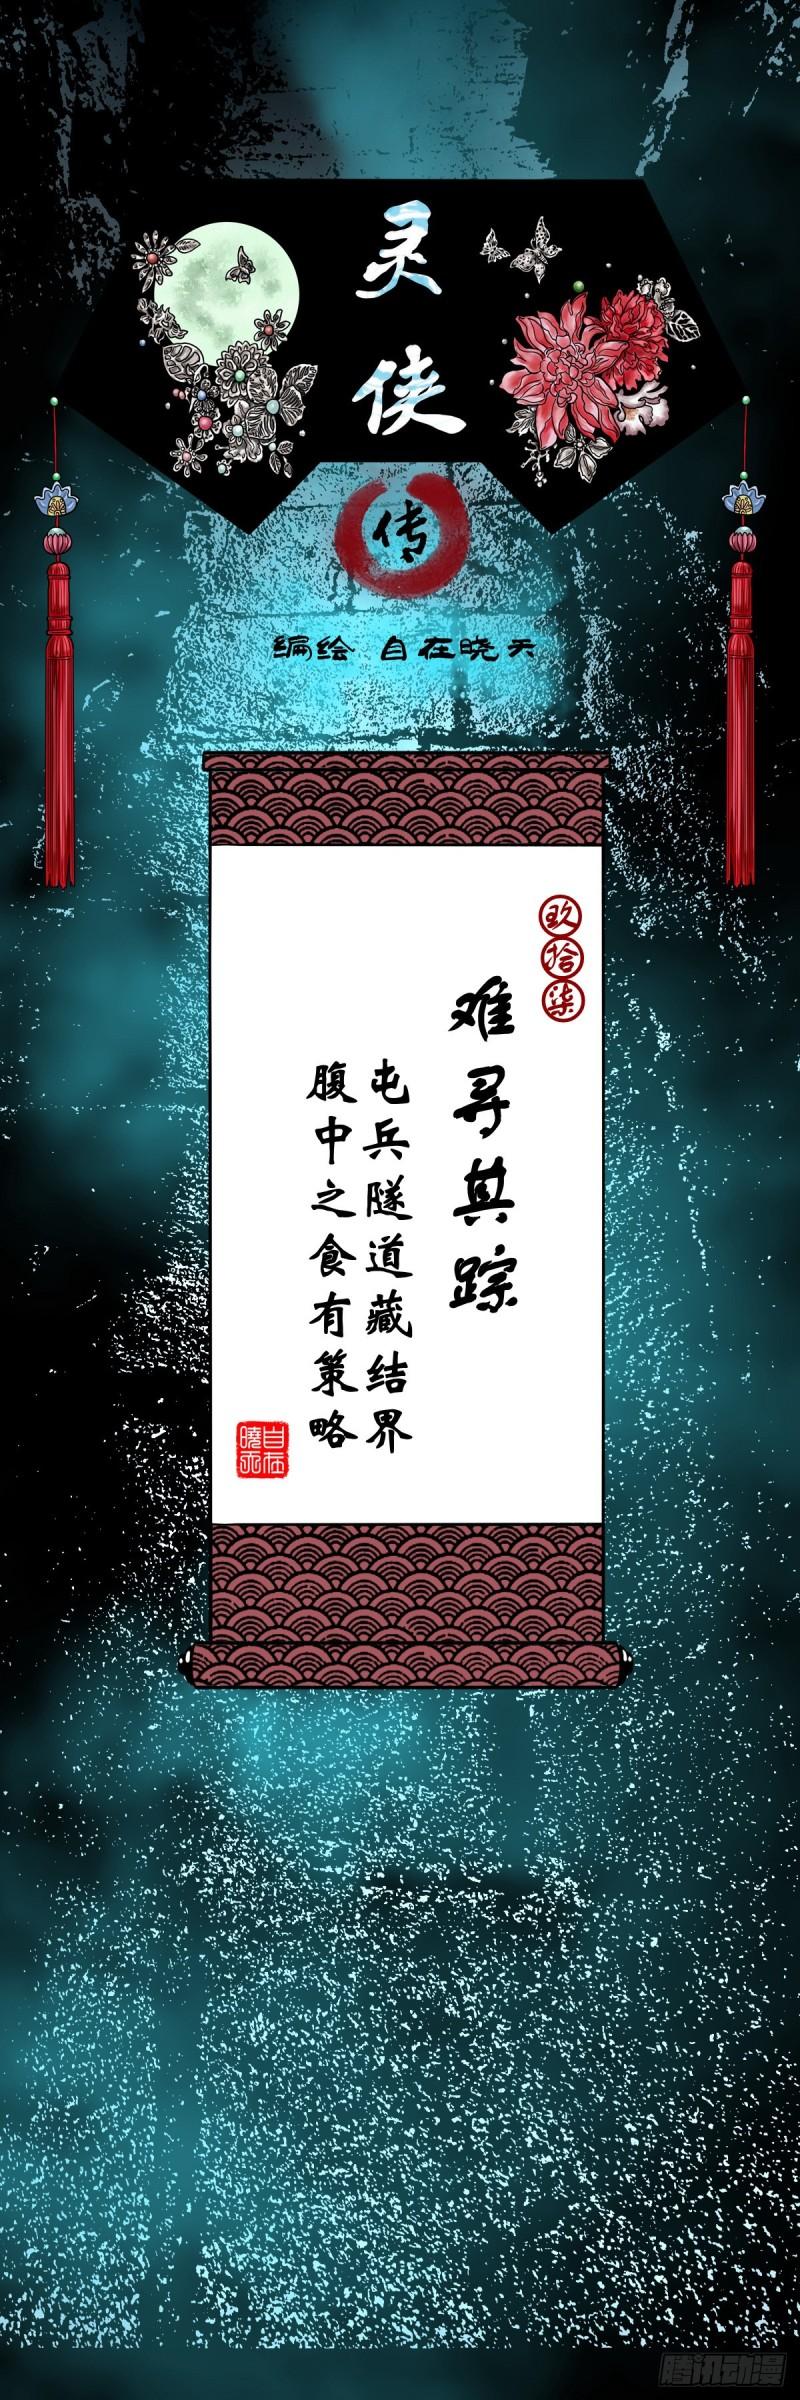 灵侠
传
编绘 自在晓天
玖拾柒
难寻其踪
屯兵隧道藏结界
腹中之食有策略
自在曉天
腾讯动漫